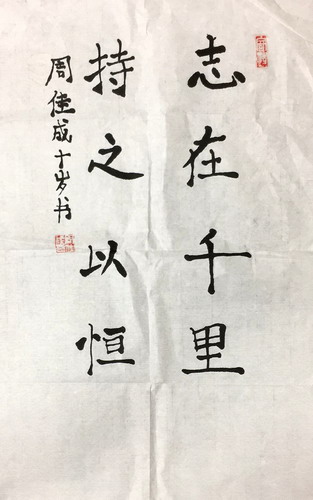 志在千里
持之以恒
周佳成十岁书